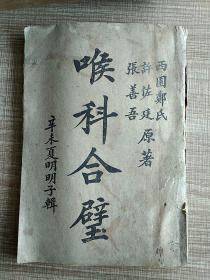 西園鄭氏
許佐廷
張善吾
原著
喉科合璧
辛未夏明明子輯